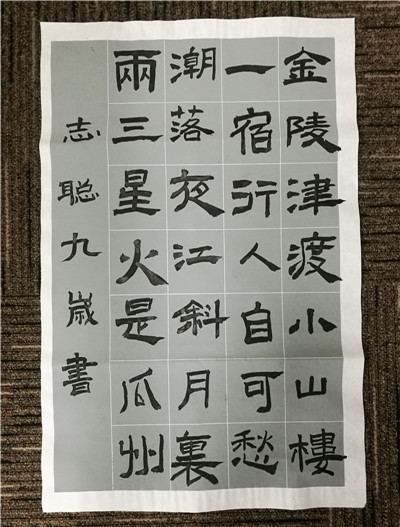 金陵津渡小山樓
一宿行人自可愁
潮落夜江斜月裏
兩三星火是瓜州
志聪九歲書